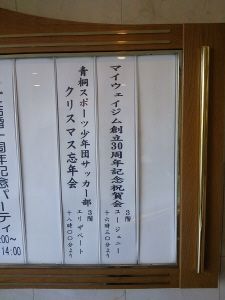 マイウェイジム創立30周年記念祝賀会
3階
ユージェニー
十六時三〇分より
青桐スポーツ少年団サッカー部
クリスマス忘年会
3階
エリザベート
十八時〇〇分より
周年記念パーティ
:00～
14:00